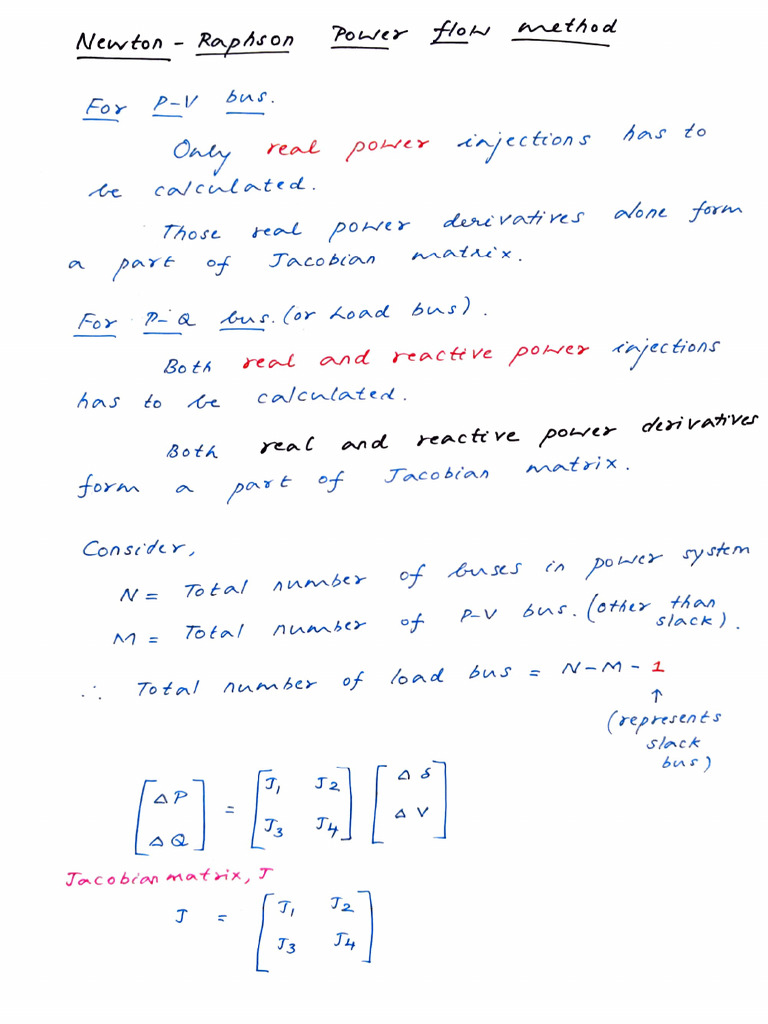 Newton - Raphson Power flow method
For P-V bus.
Only real power injections has to
be calculated.
Those real power derivatives alone form
a part of Jacobian matrix.
For P-Q bus. (or Load bus).
Both real and reactive power injections
has to be calculated.
Both real and reactive power derivatives
form a part of Jacobian matrix.
Consider,
N = Total number of buses in power system
M = Total number of P-V bus. (other than
slack).
∴ Total number of load bus = N-M-1
↑
(represents
slack
bus)
[ΔP ΔQ] = [J1 J2 J3 J4] [Δδ ΔV]
Jacobian matrix, J
J = [J1 J2 J3 J4]